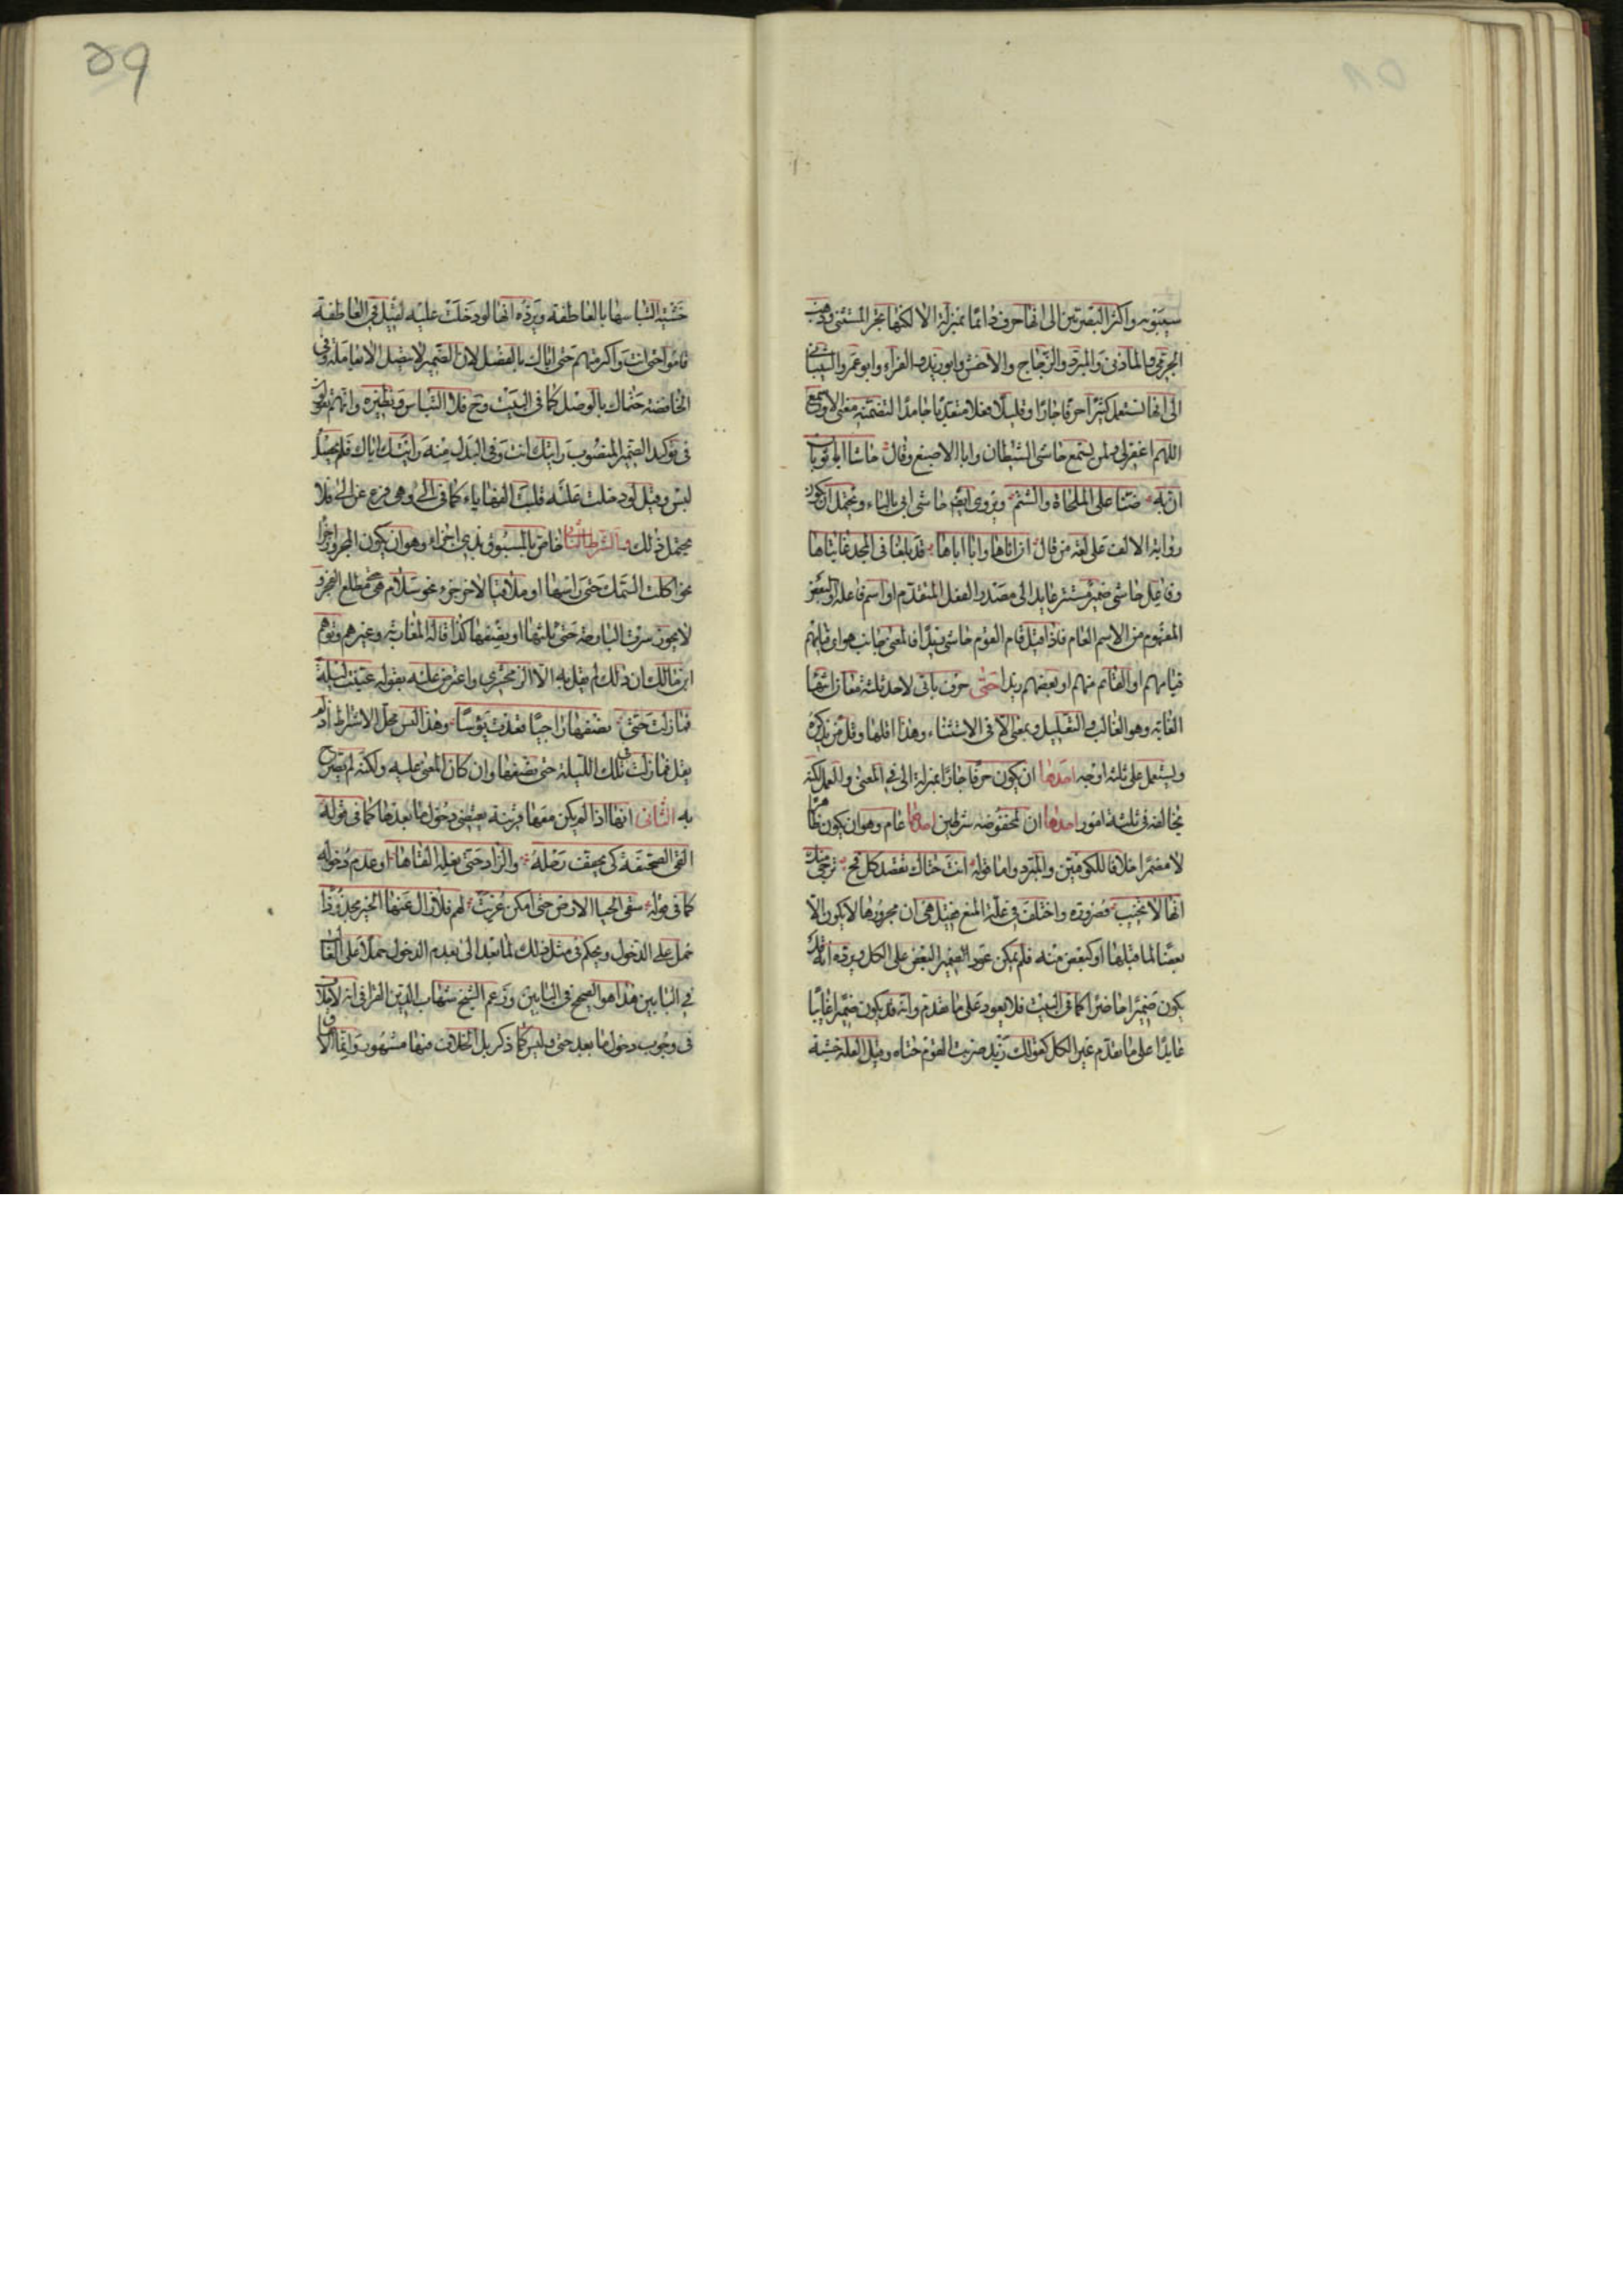 سيبويه واكثر البصريين الى انها حرف دائما بمنزلة الا لكنها تجر المستثنى وذهب
الجرمى والمازنى والمبرد والزجاج والاخفش وابو زيد والفراء وابو عمرو الشيبانى
الى انها تستعمل كثيرا حرفا جارا وقليلا فعلا متعديا جامدا لتضمنه معنى الا وسمع
اللهم اغفرلى ولمن يسمع حاشى الشيطان وابا الاصبغ وقال حاشا ابا ثوبان
ان به ضنا على الملحاة والشتم ويروى ايضا حاشى ابى بالياء ويحتمل ان يكون
رواية الالف على لغة من قال ان اباها وابا اباها قد بلغا فى المجد غايتاها
وفاعل حاشى ضمير مستتر عايد الى مصدر الفعل المتقدم او اسم فاعله او البعض
المفهوم من الاسم العام فاذا قيل قام القوم حاشى زيدا فالمعنى جانب هو اى قيامهم
قيامهم او القائم منهم او بعضهم زيدا حتى حرف ياتى لاحد ثلثة معان انتهاء
الغاية وهو الغالب والتعليل وبمعنى الا فى الاستثناء وهذا اقلها وقل من يذكره
ويستعمل على ثلثة اوجه احدها ان يكون حرفا جارا بمنزلة الى فى المعنى والعمل لكنه
يخالفه فى ثلثة امور احدها ان لمخفوضه شرطين احدهما عام وهو ان يكون ظاهرا
لا مضمرا خلافا للكوفيين والمبرد واما قوله انت حتاك تقصد كل فج ترجى منك
انها لا تخيب فضرورة واختلف فى علة المنع فقيل هى ان مجرورها لا يكون الا
بعضا لما قبلها او كبعض منه فلم يمكن عود الضمير البعض على الكل ويرده انه قد
يكون ضميرا حاضرا كما فى البيت فلا يعود على ما تقدم وانه قد يكون ضميرا غائبا
عايدا على ما تقدم غير الكل كقولك زيد ضربت القوم حتاه وقيل العلة خشية
خشية التباسها بالعاطفة ويرده انها لو دخلت عليه لقيل فى العاطفة
قاموا حتى انت واكرمتهم حتى اياك بالفصل لان الضمير لا يتصل الا بعامله وفى
الخافضة حتاك بالوصل كما فى البيت وح فلا التباس ونظيره وانهم يقولون
فى توكيد الضمير المنصوب رايتك انت وفى البدل منه رايتك اياك فلم يحصل
لبس وقيل لو دخلت عليه قلبت الفها ياء كما فى الى وهى فرع عن الى فلا
يحتمل ذلك والشرط الثانى خاص بالمسبوق بذى اجزاء وهو ان يكون المجرور اخرا
نحو اكلت السمك حتى راسها او ملاقيا لاخر جزء نحو سلام هى حتى مطلع الفجر و
لا يجوز سرت البارحة حتى ثلثها او نصفها كذا قاله المغاربة وغيرهم وتوهم
ابن مالك ان ذلك لم يقل به الا الزمخشرى واعترض عليه بقوله عينت ليلة
فما زلت حتى نصفها راجيا فعدت يؤسا وهذا ليس محل الاشتراط اذ لم
يقل فما زلت فى تلك الليلة حتى نصفها وان كان المعنى عليه ولكنه لم يصرح
به الثانى انها اذا لم يكن معها قرينة يقتضى دخول ما بعدها كما فى قوله
القى الصحيفة كى يخفف رحله والزاد حتى نعله القاها او عدم دخوله
كما فى قوله سقى الحيا الارض حتى امكن عزيت لهم فلا زال عنها الخير محذوذا
حمل على الدخول ويحكم فى مثل ذلك لما بعد الى بعدم الدخول حملا على الغالب
فى البابين هذا هو الصحيح فى البابين وزعم الشيخ شهاب الدين القرافى انه لا خلاف
فى وجوب دخول ما بعد حتى وليس كما ذكر بل الخلاف فيها مشهور وانما الاتفاق
٥٩